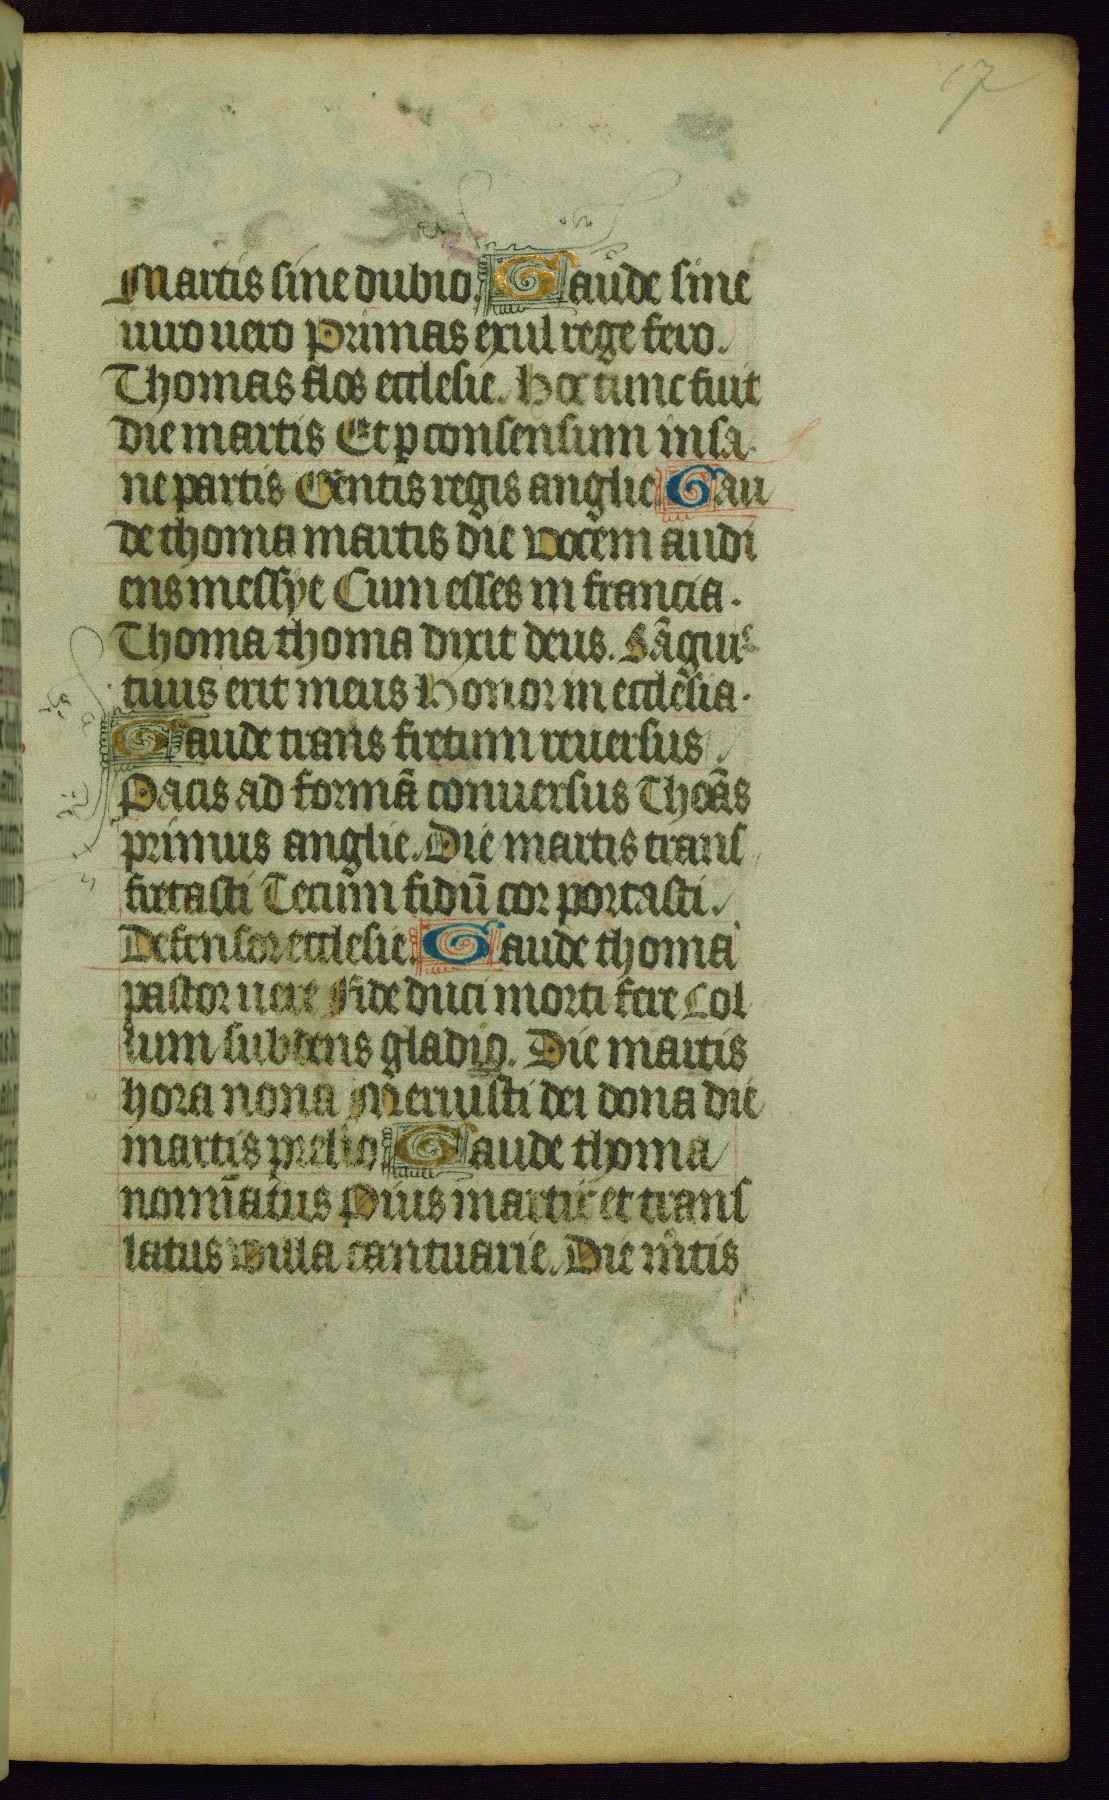 17
Martis sine dubio. Gaude sine
uiro uero Primas exul rege fero.
Thomas flos ecclesie. Hoc tunc fuit
die martis Et ꝑ consensum insa
ne partis Gentis regis anglie. Gau
de thoma martis die Vocem audi
ens messye Cum esses in francia.
Thoma thoma dixit deus. Sāguis
tuus erit meus Honor in ecclesia.
Gaude trans fretum reuersus
Pacis ad formā conuersus Thoās
primus anglie. Die martis trans
fretasti Tecum fidū cor portasti.
Defensor ecclesie. Gaude thoma
pastor uere Fide duci morti fere Col
lum subdens gladio. Die martis
hora nona Meruisti dei dona die
martis prelio. Gaude thoma
nomīatus Pius martir et trans
latus Villa cantuarie. Die mrtis